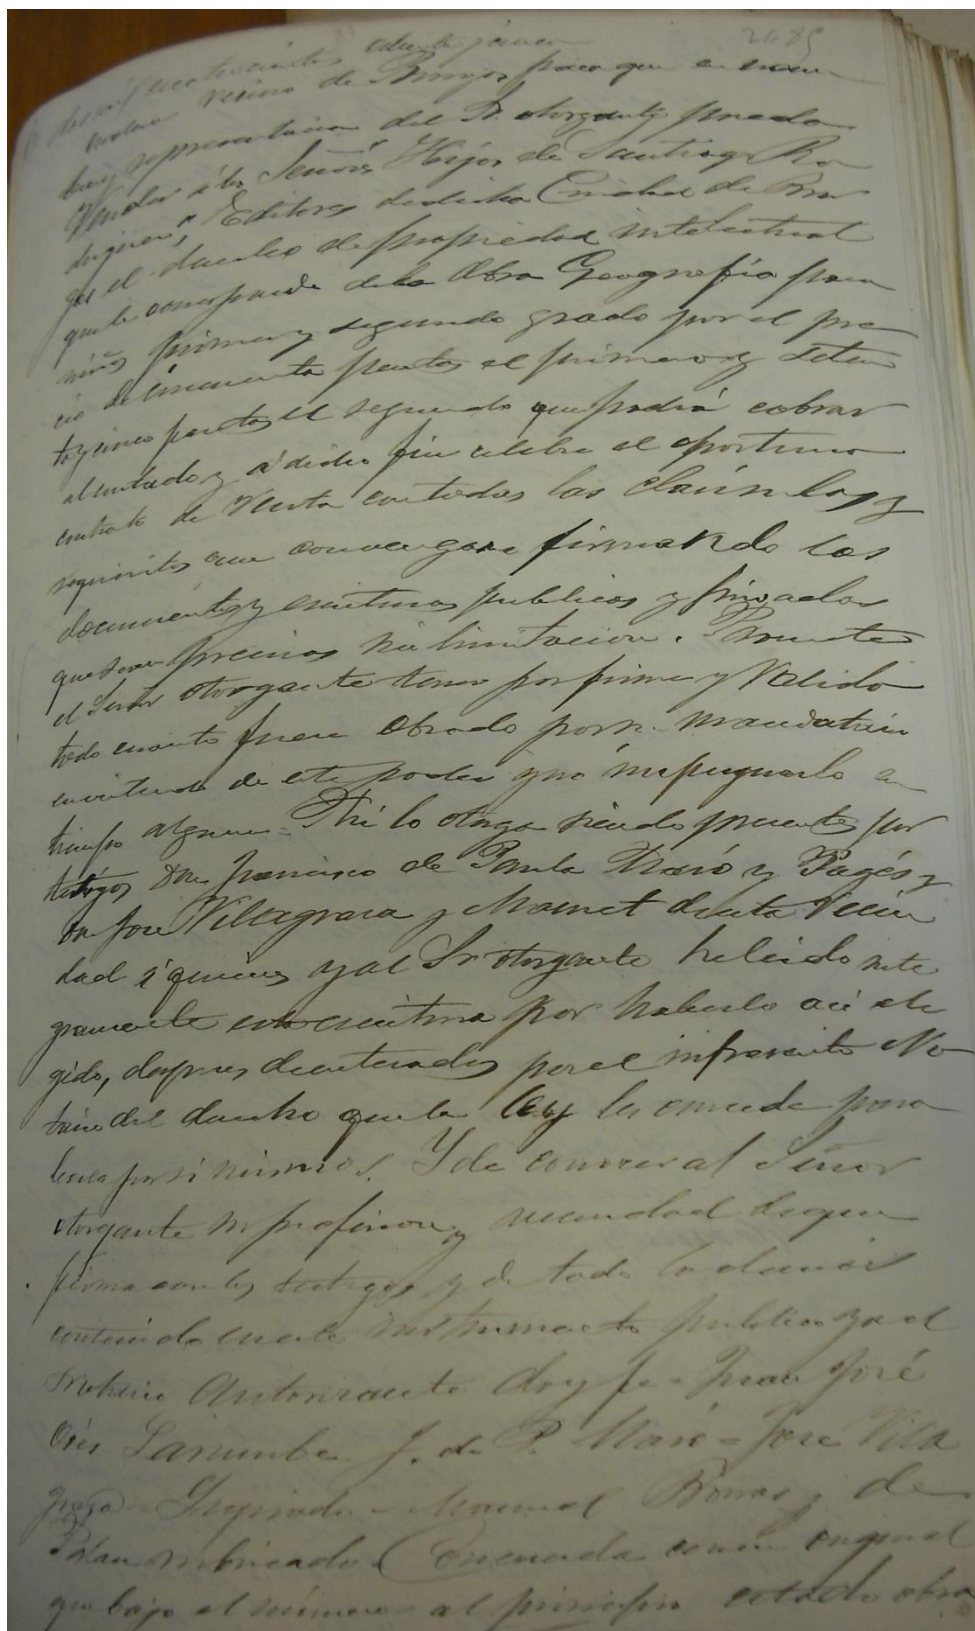 2485
vecino de Burgos para que en nom
bre y representacion del Sr. otorgante pueda
Vender á los Señores Hijos de Santiago Ro
driguez, Editores de dicha Ciudad de Bur
gos el derecho de propiedad intelectual
que le corresponde de la Obra Geografía para
niños primer y segundo grado por el pre
cio de cincuenta pesetas el primero y seten
ta y cinco pesetas el segundo que podrá cobrar
al contado y á dicho fin celebre el oportuno
contrato de Venta con todas las cláusulas y
requisitos que convengan firmando los
documentos y escrituras publicas y privadas
que sean precisas sin limitacion. Promete
el Señor otorgante tener por firme y Valido
todo cuanto fuere obrado por su mandatario
en virtud de este poder y no impugnarlo en
tiempo alguno = Asi lo otorga siendo presentes por
testigos Don Francisco de Paula Maró y Pagés y
Don José Vilagrasa y Mamet de esta Vecin
dad á quienes y al Sr otorgante he leido inte
gramente esta escritura por haberlo asi ele
gido, despues de enterados por el infrascrito No
tario del derecho que la ley les concede para
leerla por si mismos. Y de conocer al Señor
otorgante su profesion y vecindad de que
firma con los testigos y de todo lo demas
contenido en este instrumento publico yo el
Notario Autorizante doy fe = Juan José
Orés Larumbe F. de P. Maró = Jose Vila
grasa = Signado = Manuel Borras y de
Palau rubricado = Concuerda con su original
que bajo el número al principio citado obra